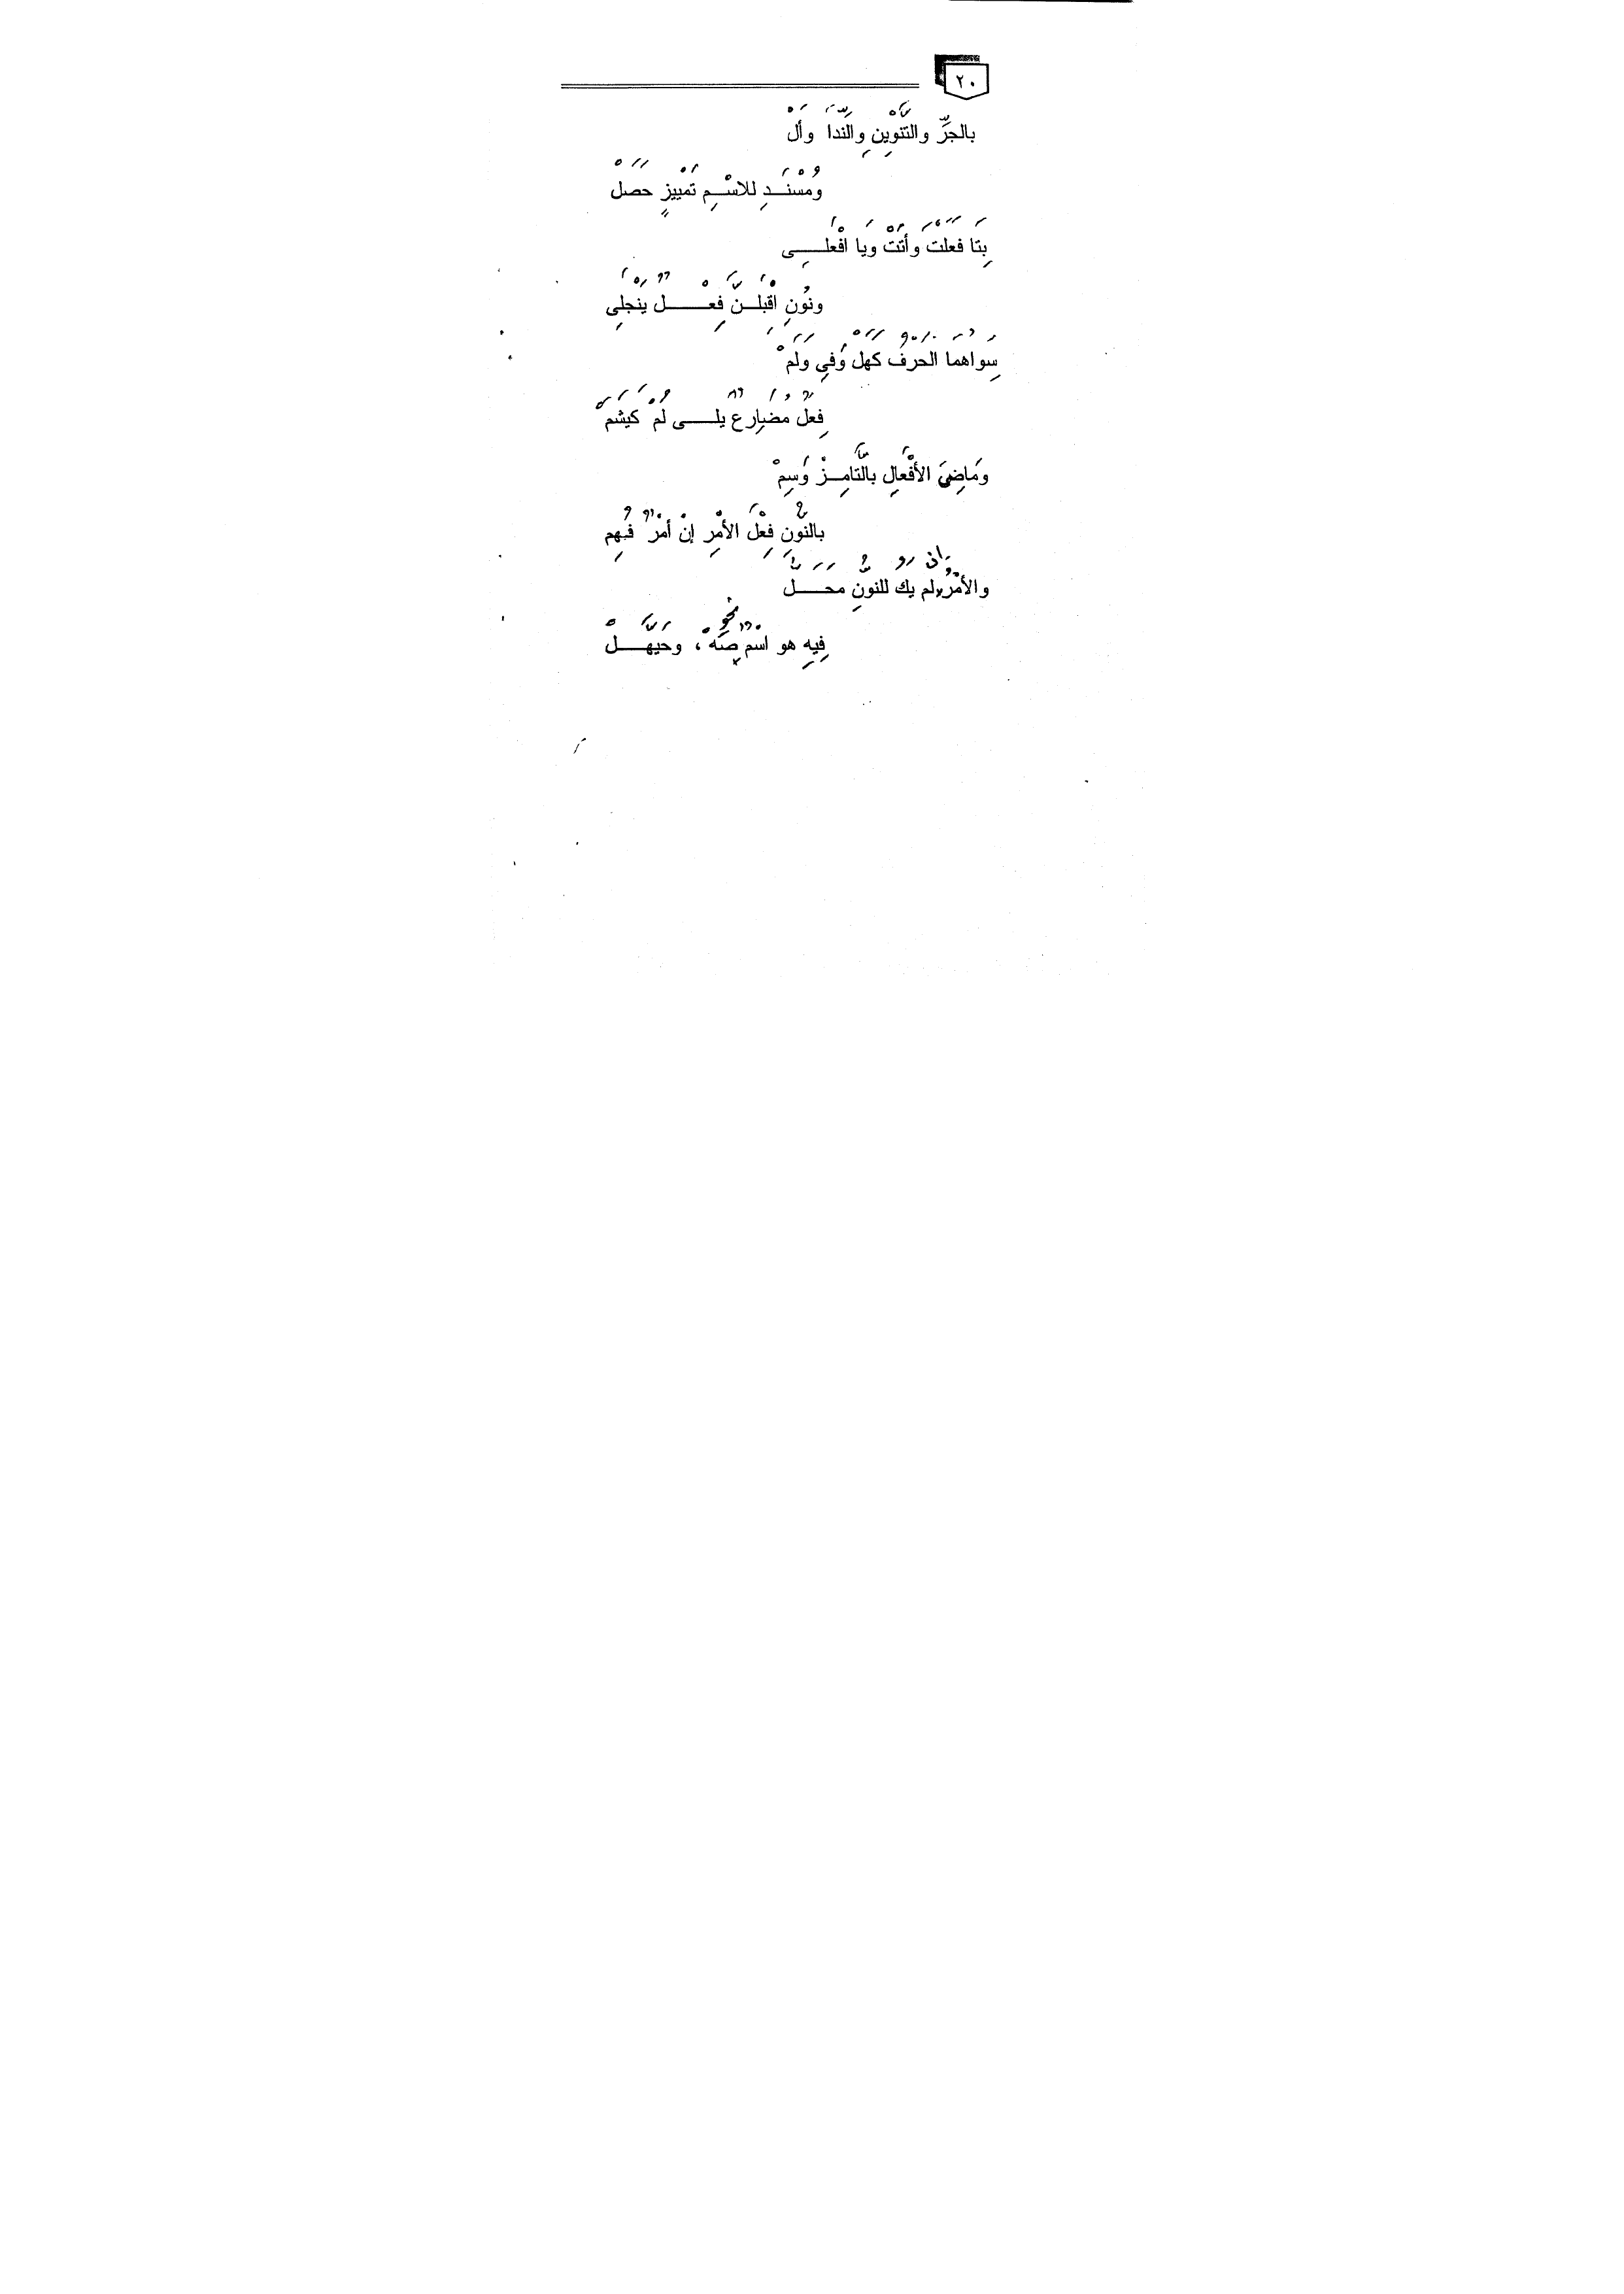 ٢٠
بالجَرِّ والتَّنْوِينِ والنِّدَا وَأَلْ
وَمُسْنَدٍ لِلاسْمِ تَمْيِيزٌ حَصَلْ
بِتَا فَعَلْتَ وَأَتَتْ وَيَا افْعَلِى
وَنُونِ اقْبِلَنَّ فِعْلٌ يَنْجَلِى
سِوَاهُمَا الحَرْفُ كَهَلْ وَفِى وَلَمْ
فِعْلٌ مُضَارِعٌ يَلِى لَمْ كَيَشَمْ
وَمَاضِىَ الأَفْعَالِ بِالتَّا مِزْ وَسِمْ
بِالنُّونِ فِعْلَ الأَمْرِ إِنْ أَمْرٌ فُهِمْ
وَالأَمْرُ إِنْ لَمْ يَكُ لِلنُّونِ مَحَلْ
فِيهِ هُوَ اسْمٌ نَحْوُ صَهْ، وَحَيَّهَلْ